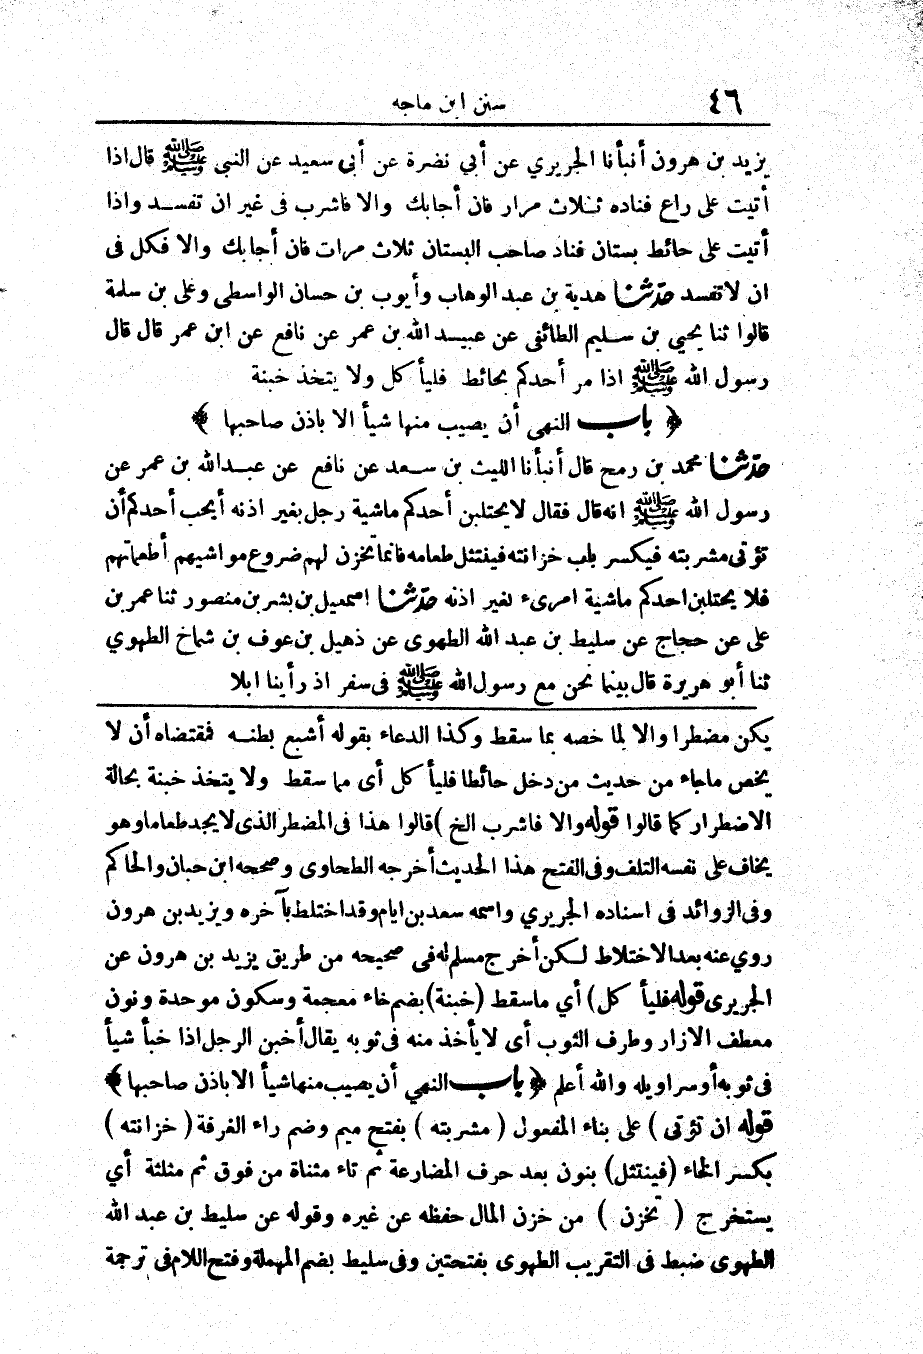 ٤٦ سنن ابن ماجه
يزيد بن هرون أنبأنا الجريري عن أبي نضرة عن أبى سعيد عن النبى ﷺ قال اذا
أتيت على راع فناده ثلاث مرار فان أجابك والا فاشرب فى غير ان تفسد واذا
أتيت على حائط بستان فناد صاحب البستان ثلاث مرات فان أجابك والا فكل فى
ان لا تفسد حدثنا هدية بن عبد الوهاب وأيوب بن حسان الواسطى وعلى بن سلمة
قالوا ثنا يحيى بن سليم الطائفى عن عبيد الله بن عمر عن نافع عن ابن عمر قال قال
رسول الله ﷺ اذا مر أحدكم بحائط فليأ كل ولا يتخذ خبنة
﴿ باب النهى أن يصيب منها شيأ الا باذن صاحبها ﴾
حدثنا محمد بن رمح قال أنبأنا الليث بن سعد عن نافع عن عبد الله بن عمر عن
رسول الله ﷺ انه قال فقال لا يحتلبن أحدكم ماشية رجل بغير اذنه أيحب أحدكم أن
تؤتى مشربته فيكسر باب خزانته فينتثل طعامه فانما تخزن لهم ضروع مواشيهم أطعماتهم
فلا يحتلبن احدكم ماشية امرىء بغير اذنه حدثنا اسمعيل بن بشر بن منصور ثنا عمر بن
على عن حجاج عن سليط بن عبد الله الطهوى عن ذهيل بن عوف بن شماخ الطهوي
ثنا أبو هريرة قال بينما نحن مع رسول الله ﷺ فى سفر اذ رأينا ابلا
يكن مضطرا والا لما خصه بما سقط وكذا الدعاء بقوله أشبع بطنه فمقتضاه أن لا
يخص ماجاء من حديث من دخل حائطا فليأ كل أى مما سقط ولا يتخذ خبنة بحالة
الاضطرار كما قالوا قوله والا فاشرب الخ ) قالوا هذا فى المضطر الذى لا يجد طعاما وهو
يخاف على نفسه التلف وفى الفتح هذا الحديث أخرجه الطحاوى وصححه ابن حبان والحاكم
وفى الزوائد فى اسناده الجريري واسمه سعد بن اياس وقد اختلط بآخره ويزيد بن هرون
روي عنه بعد الاختلاط لكن أخرج مسلم له فى صحيحه من طريق يزيد بن هرون عن
الجريرى قوله فليأ كل ) أي ما سقط (خبنة) بضم خاء معجمة وسكون موحدة ونون
معطف الازار وطرف الثوب أى لا يأخذ منه فى ثوبه يقال أخبن الرجل اذا خبأ شيأ
فى ثوبه أو سراويله والله أعلم ﴿ باب النهي أن يصيب منها شيأ الا باذن صاحبها ﴾
قوله ان تؤتى ) على بناء المفعول ( مشربته ) بفتح ميم وضم راء الغرفة ( خزانته )
بكسر الخاء (فينتثل) بنون بعد حرف المضارعة ثم تاء مثناة من فوق ثم مثلثة أي
يستخرج ( تخزن ) من خزن المال حفظه عن غيره وقوله عن سليط بن عبد الله
الطهوى ضبط فى التقريب الطهوى بفتحتين وفى سليط بضم المهملة وفتح اللام فى ترجمة